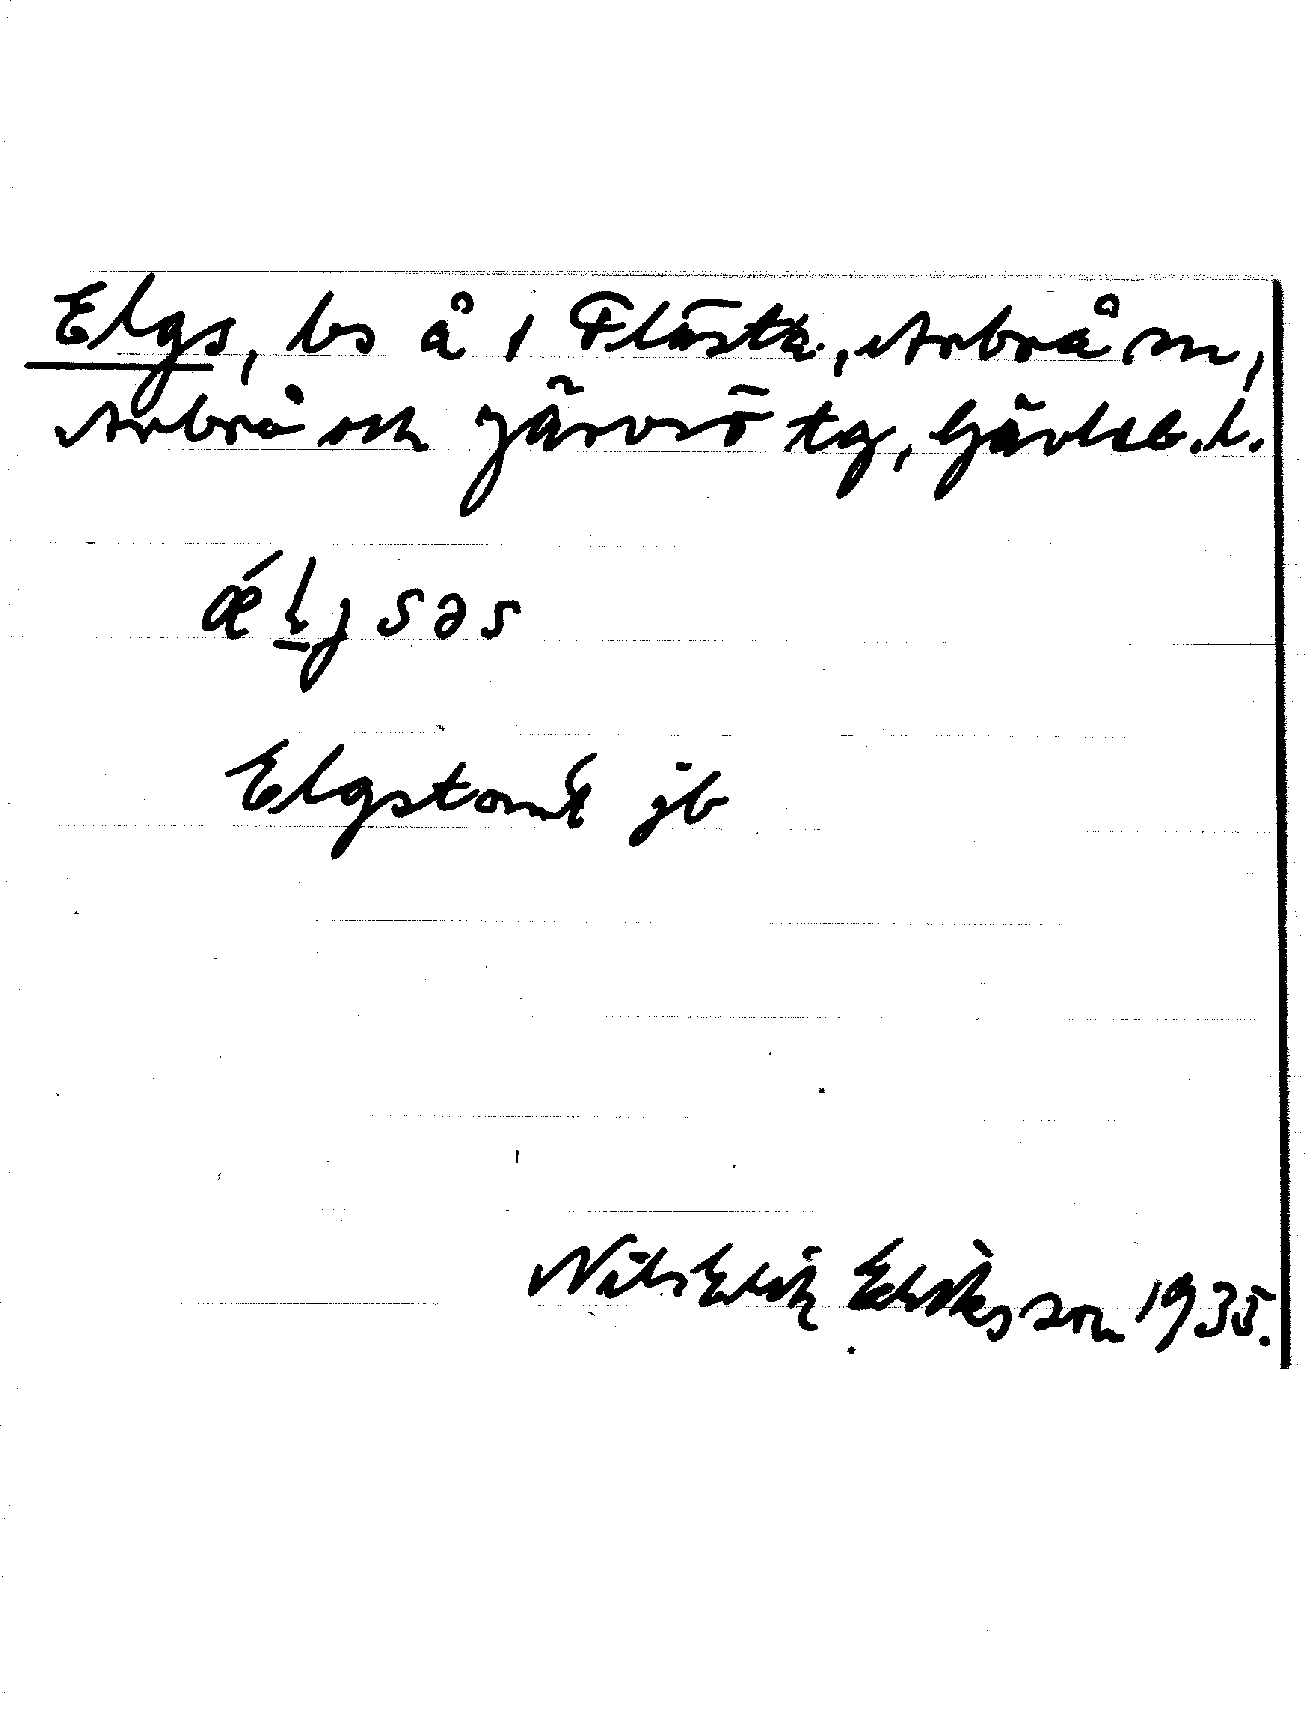 Elgs, bs å 1 Flästa, Arbrå sn,
Arbrå och Järvsö tg, Gävleb. l.
ǽl̠gsəs
Elgstomt jb
Nils Erik Eriksson 1935.